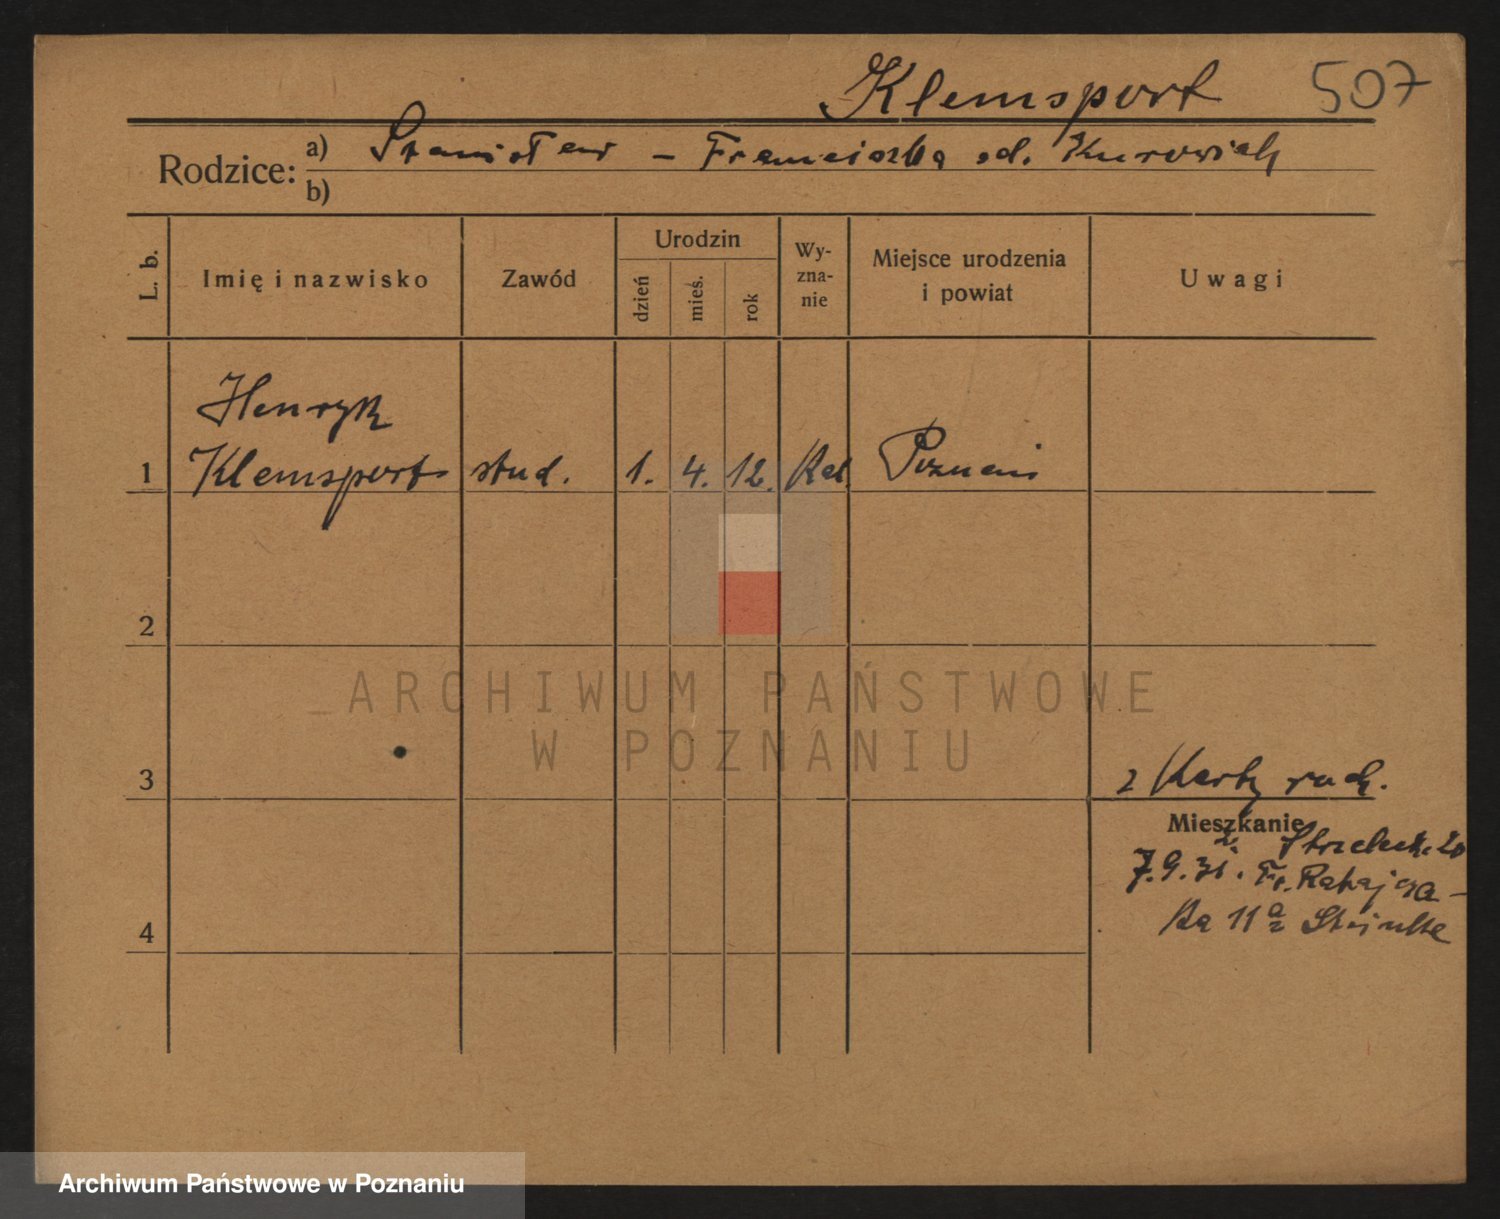 Klemsport 507
Rodzice:
a) Stanisław – Franciszka od. Kurowiak
b)
L. b.
Imię i nazwisko
Zawód
Urodzin
dzień
mieś.
rok
Wy-
zna-
nie
Miejsce urodzenia
i powiat
Uwagi
Henryk
1 Klemsport stud. 1. 4. 12. Kat. Poznań
2
ARCHIWUM PAŃSTWOWE
W POZNANIU
3
z Karty rodz.
Mieszkanie
z Strzelecka 20
7.9.31. Fr. Ratajcza-
ka 11a
4
Archiwum Państwowe w Poznaniu